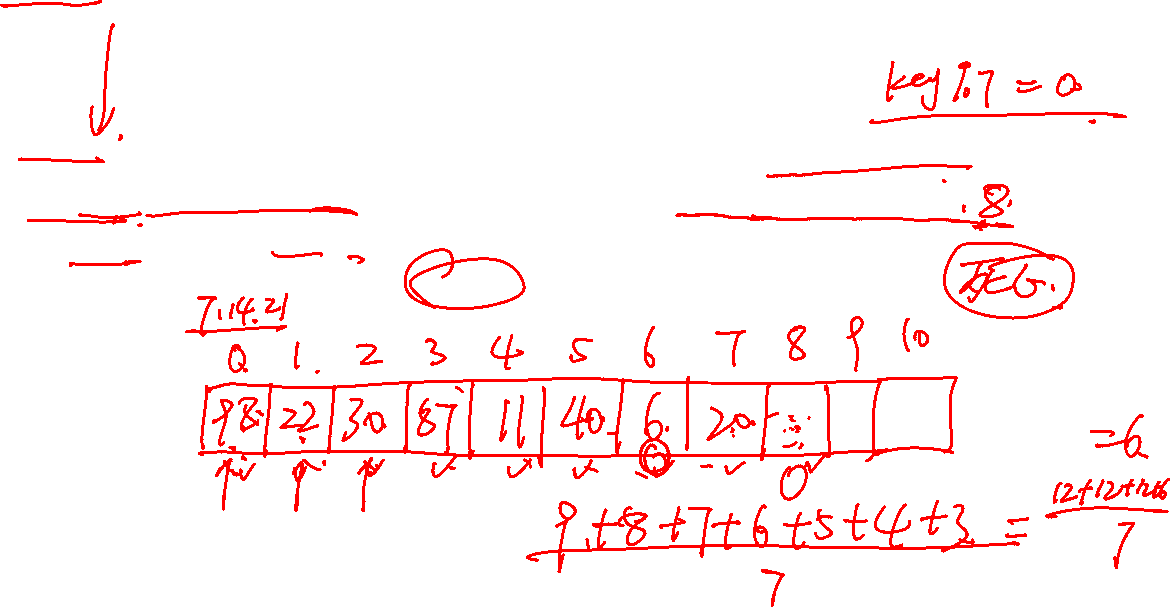 key % 7 = 0
8
7.14.21
0 1 2 3 4 5 6 7 8 9 10
98 22 30 87 11 40 6 20
= 6
9+8+7+6+5+4+3 =
7
7